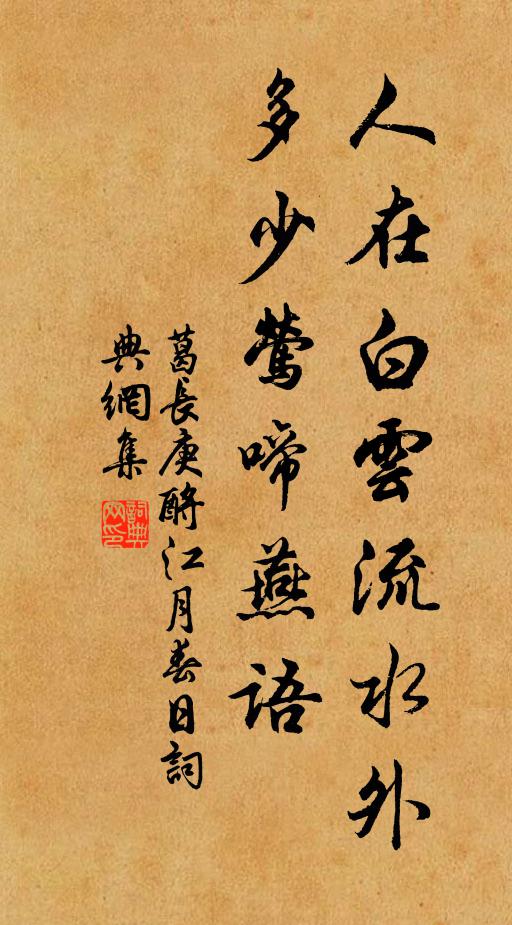 人在白雲流水外
多少鶯啼燕語
葛長庚酹江月春日詞
典網集
詞典
网印